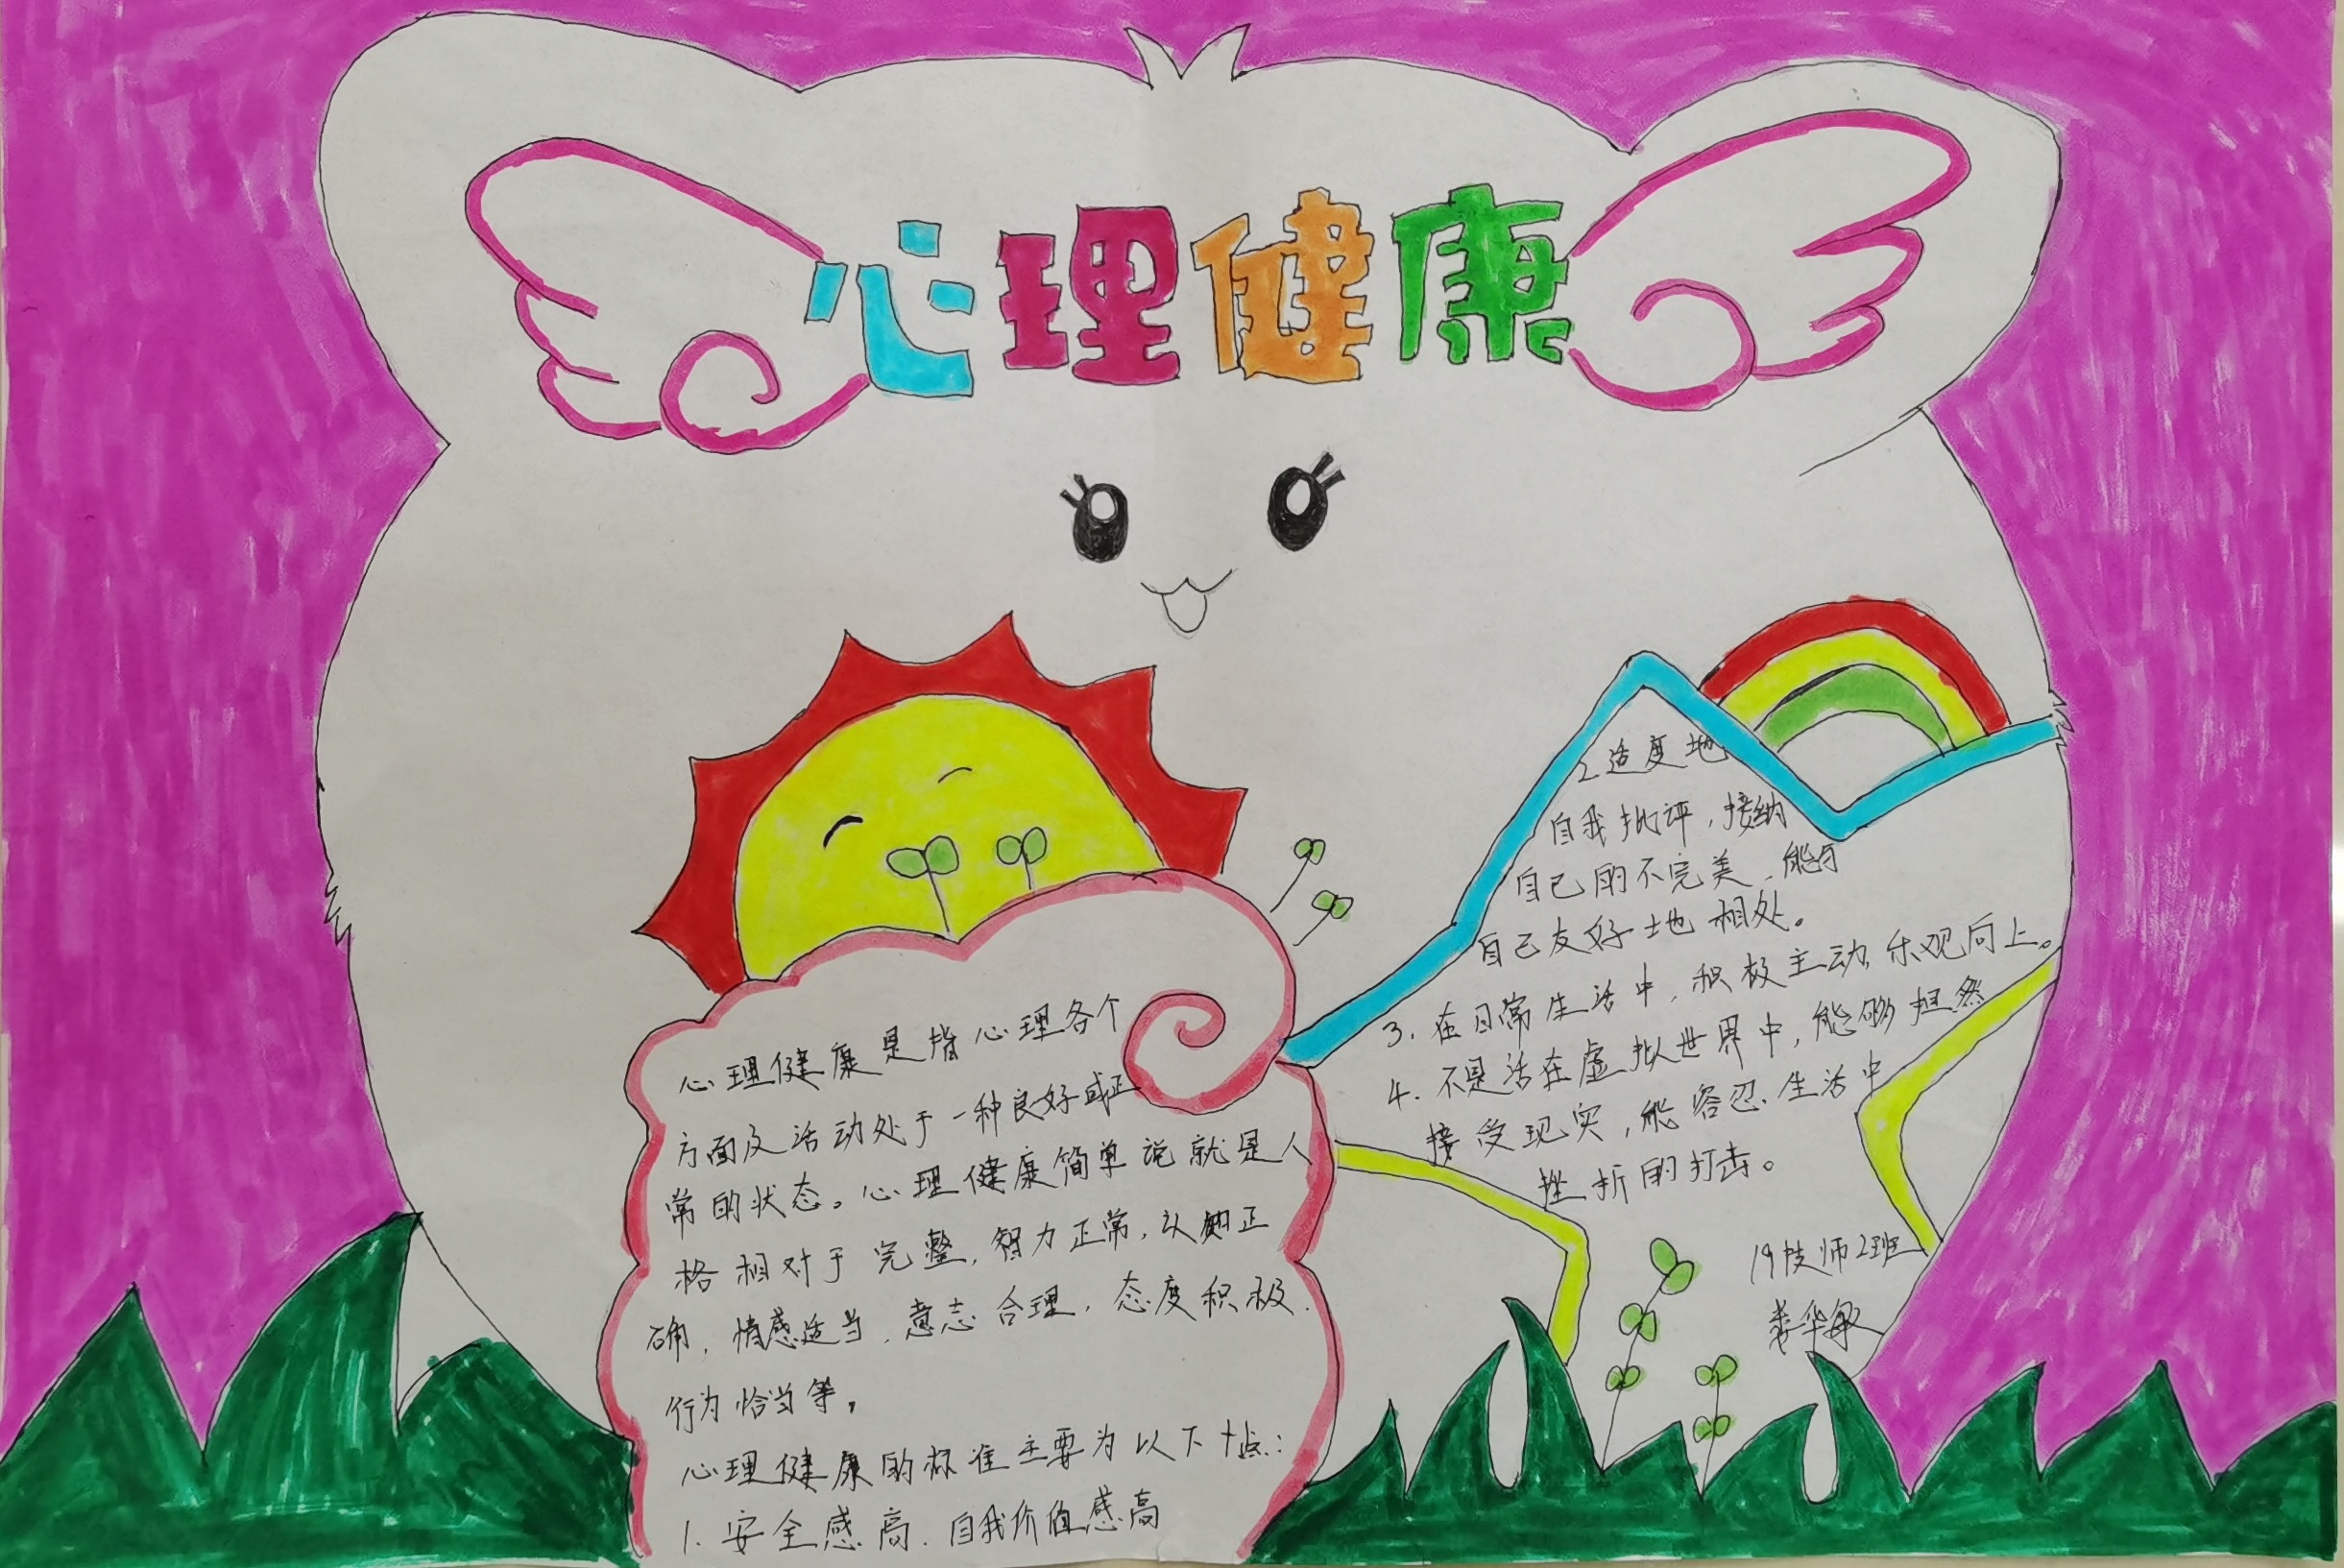 心理健康
心理健康是指心理各个
方面及活动处于一种良好或正
常的状态。心理健康简单说就是人
格相对于完整，智力正常，认知正
确，情感适当，意志合理，态度积极，
行为恰当等。
心理健康的标准主要为以下十点：
1.安全感高.自我价值感高
2适度地
自我批评，接纳
自己的不完美，能与
自己友好地相处。
3.在日常生活中，积极主动，乐观向上。
4.不是活在虚拟世界中，能够坦然
接受现实，能容忍生活中
挫折的打击。
19技师2班
娄华敏